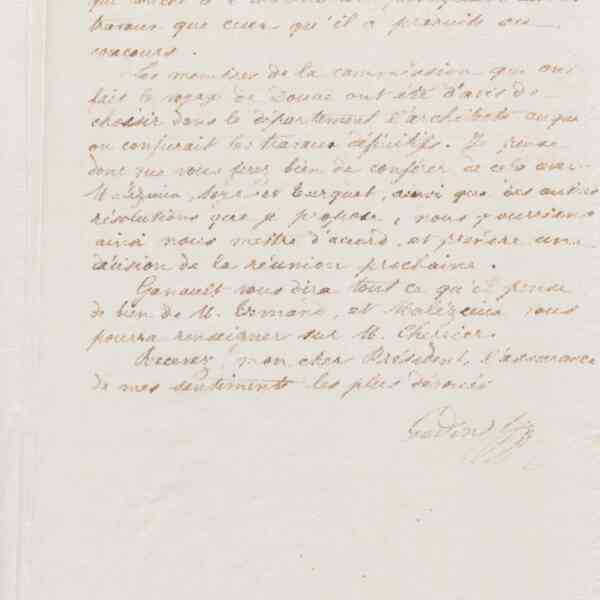 travaux que ceux qu'il a produits au
concours.
Les membres de la commission qui ont
fait le voyage de Douai ont été d'avis de
choisir dans le département l'architecte auquel
on confierait les travaux définitifs. Je pense
donc que vous ferez bien de conférer de cela avec
Malézieux, et Turquet, ainsi que des autres
résolutions que je propose, nous pourrions
ainsi nous mettre d'accord, et prendre une
décision de la réunion prochaine.
Ganault vous dira tout ce qu'il pense
de bien de M. Ermant, et Malézieux vous
pourra renseigner sur M. Cherrier.
Recevez, mon cher Président, l'assurance
de mes sentiments les plus dévoués
Godin